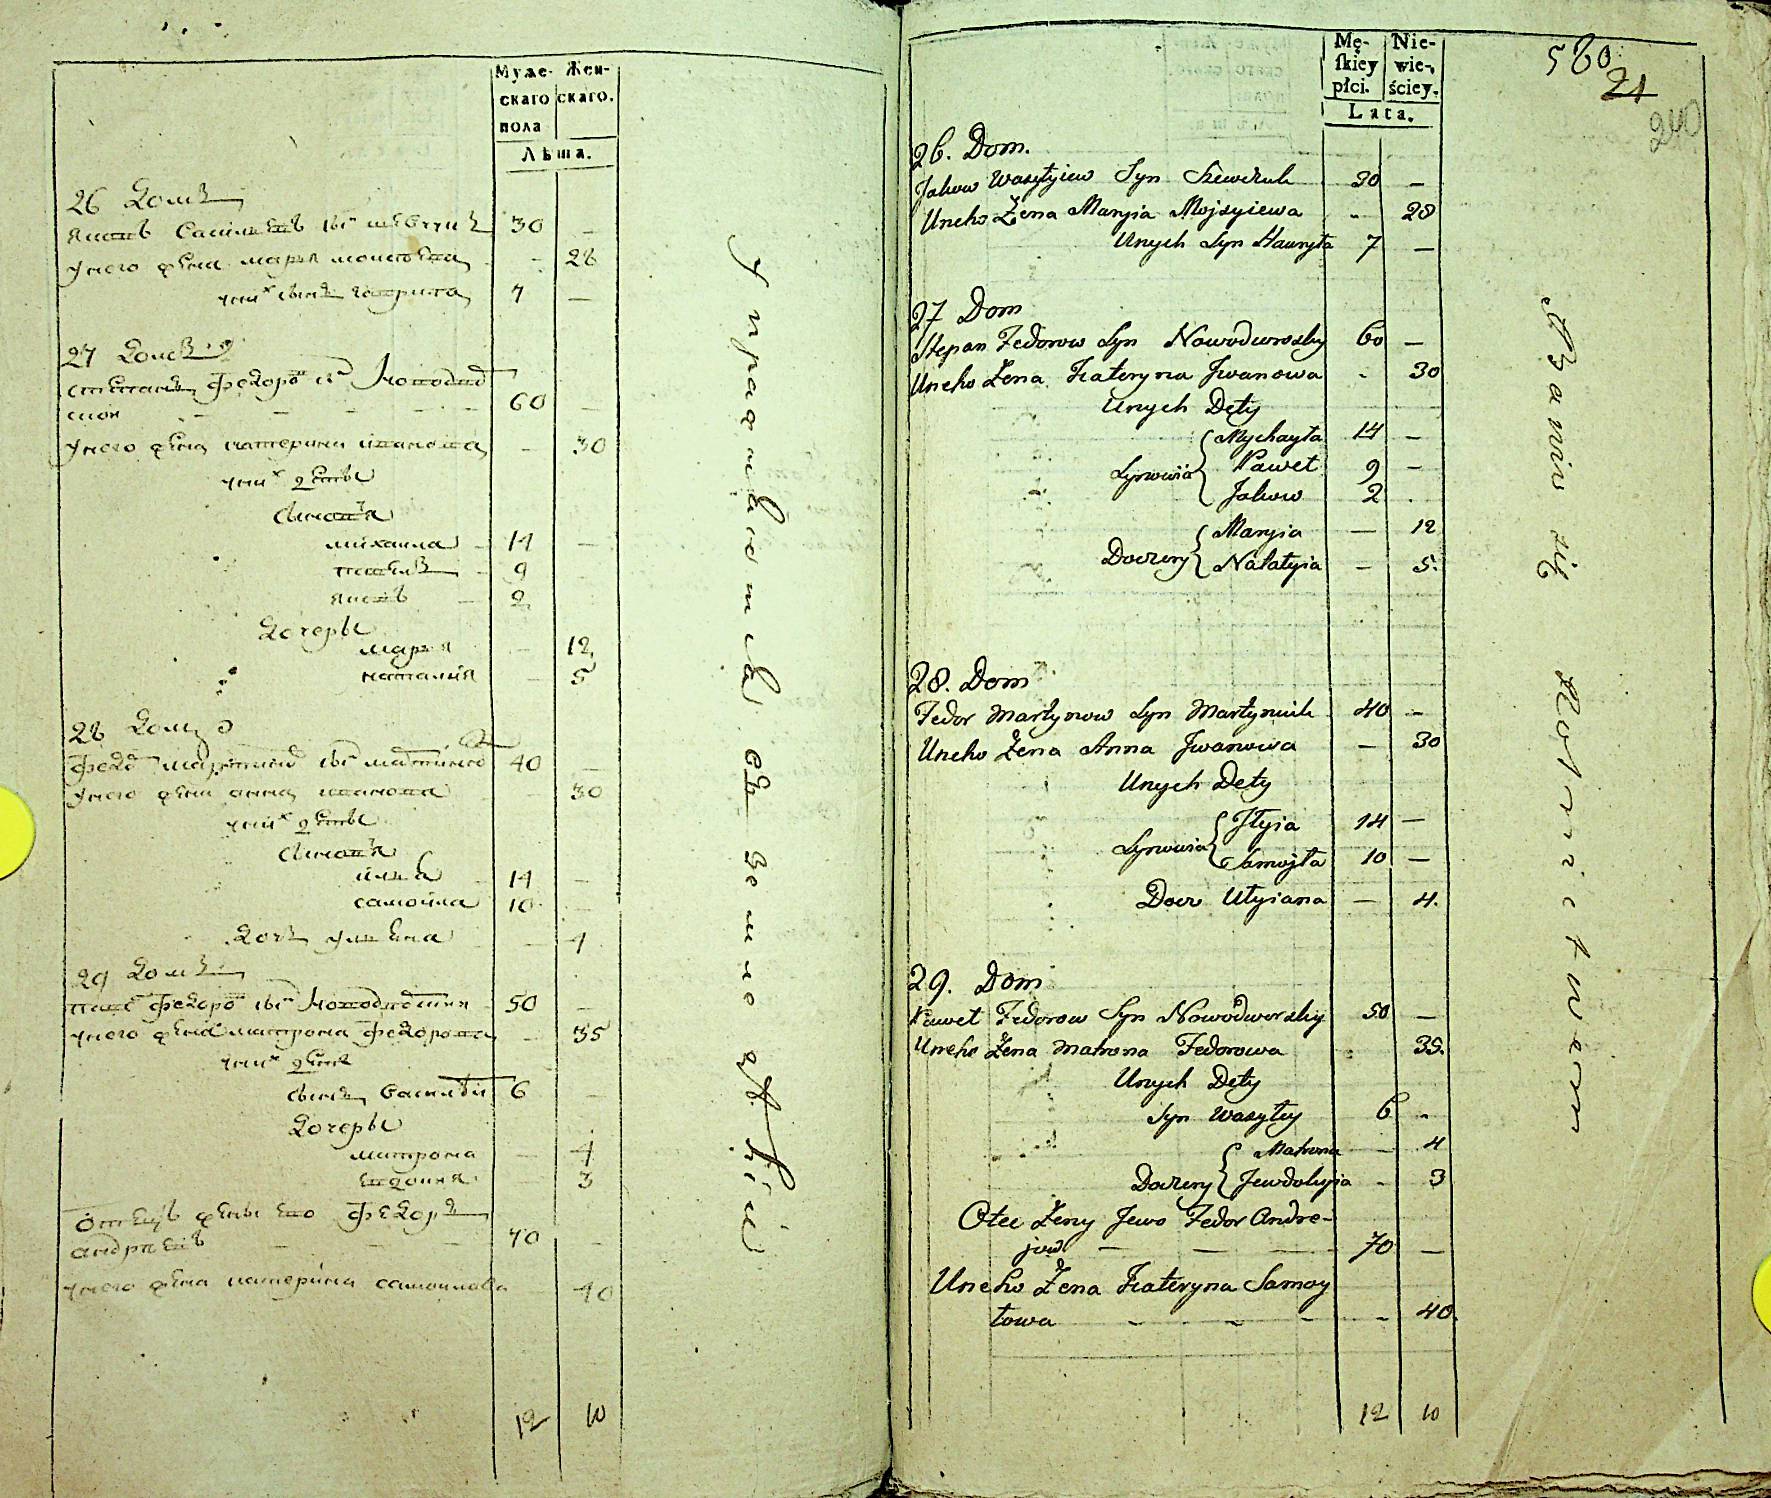 Муже- | Жен-
скаго | скаго.
пола
Лѣта.
26 Домъ
Яковъ Васильевъ сынъ Шевчукъ 30 —
У него жена Марья Моисеева - 28
у них сынъ Гаврила 7 —
27 Домъ
Степанъ Федоровъ сынъ Новодвор
ский - - - - - 60 —
У него жена Катерина Иванова - 30
у них дѣти
сыновья
Михаила 14 —
Павелъ 9
Яковъ 2
Дочери
Марья — 12
Наталия — 5
28 Домъ
Федоръ Мартиновъ сынъ Мартинюкъ 40 —
У него жена Анна Иванова 30
у них дѣти
сыновья
Илья 14 —
Самойла 10 —
Дочь Ульяна — 4
29 Домъ
Павелъ Федоровъ сынъ Новодворский 50 —
У него жена Матрона Федорова - 35
у них дѣти
сынъ Василѣй 6 —
Дочери
Матрона — 4
Евдокия 3
Отецъ жены его Федоръ
Андреевъ — — — 70 —
У него жена Катерина Самоилова 40
12 10
Упражняются въ земледѣлiи
Mę- | Nie-
skiey | wie-
płci. | ściey.
Lata.
580
21
240
26. Dom.
Jakow Wasyłyiew Syn Szewczuk 30 —
Uneho Żena Maryia Mojsyiewa - 28
Unych Syn Hawryła 7 —
27 Dom
Stepan Fedorow Syn Nowodworsky 60 —
Uneho Żena Kateryna Jwanowa - 30
Unych Dety
Mychayła 14 —
Synowia Paweł 9 —
Jakow 2 .
Maryia — 12
Doczery Nałałyia — 5.
28. Dom
Fedor Martynow Syn Martyniuk 40 —
Uneho Żena Anna Jwanowa — 30
Unych Dety
Jłyia 14 —
Synowia Samojła 10 —
Docz Ulyiana — 4.
29. Dom
Paweł Fedorow Syn Nowodworsky 50 —
Uneho Żena Matrona Fedorowa 35.
Unych Dety
Syn Wasyłey 6 -
Matrona — 4
Doczery Jewdokyia - 3
Otec Żeny Jewo Fedor Andre-
jew — — — 70 —
Uneho Żena Kateryna Samoy
łowa - - - - 40.
12 10
Bawią się Rolnictwem